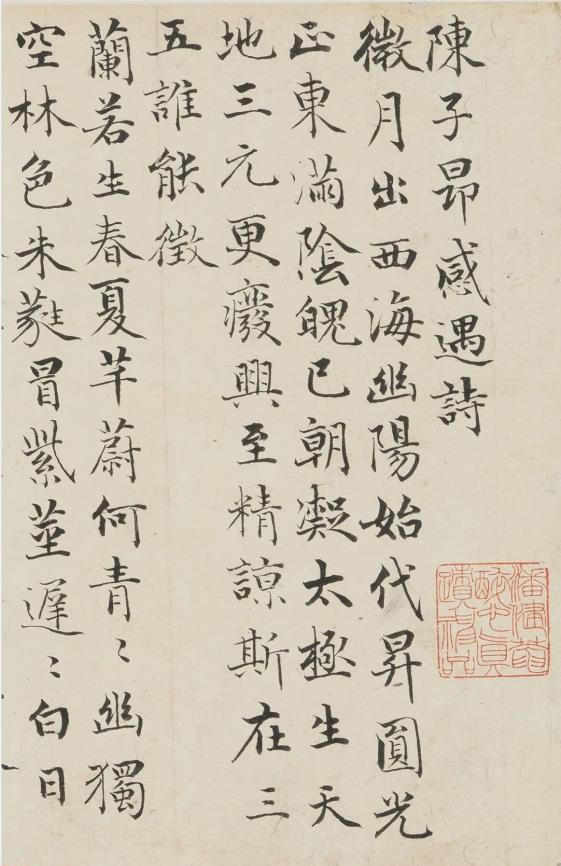 陳子昂感遇詩
微月出西海幽陽始代昇圓光
正東滿陰魄已朝凝太極生天
地三元更廢興至精諒斯在三
五誰能徵
蘭若生春夏芊蔚何青〻幽獨
空林色朱蕤冒紫莖遲〻白日